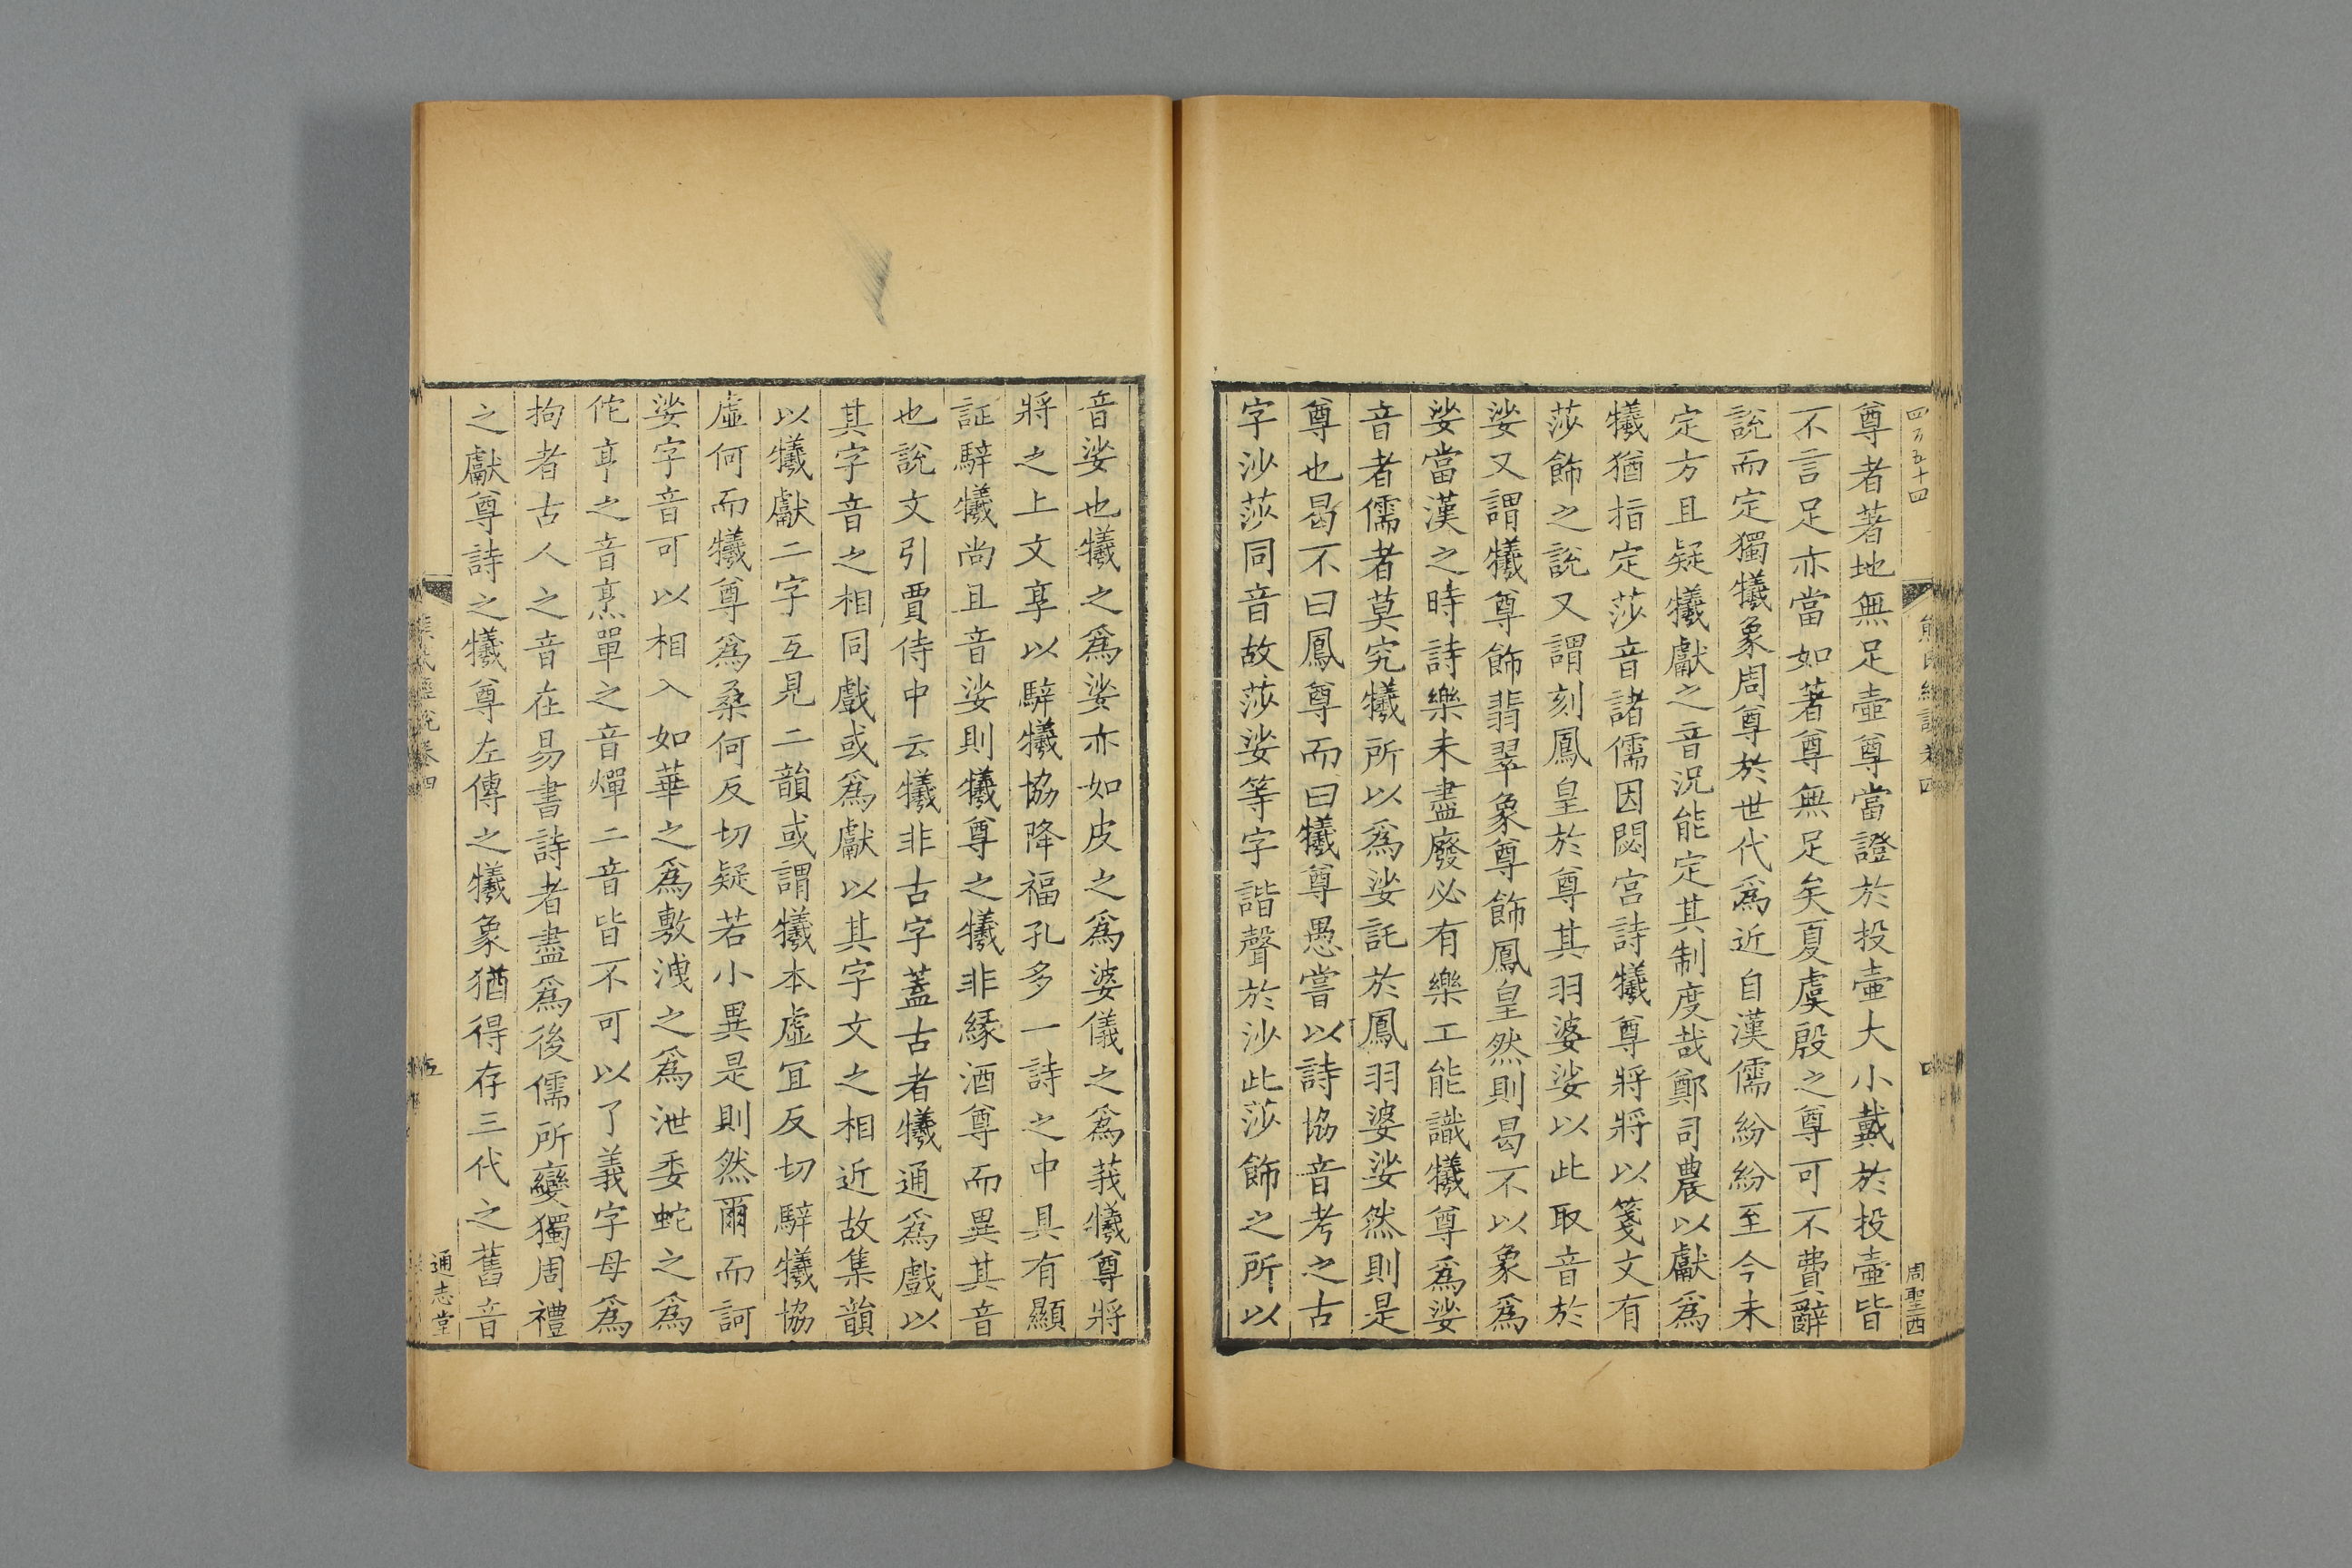 四百五十四
周聖西
尊者著地無足壺尊當證於投壺大小戴於投壺皆
不言足亦當如著尊無足矣夏虞殷之尊可不費辭
說而定獨犧象周尊於世代爲近自漢儒紛紛至今未
定方且疑犧獻之音況能定其制度哉鄭司農以獻爲
犧猶指定莎音諸儒因閟宫詩犧尊將將以箋文有
莎飾之說又謂刻鳳皇於尊其羽婆娑以此取音於
娑又謂犧尊飾翡翠象尊飾鳳皇然則曷不以象爲
娑當漢之時詩樂未盡廢必有樂工能識犧尊爲娑
音者儒者莫究犧所以爲娑託於鳳羽婆娑然則是
尊也曷不曰鳳尊而曰犧尊愚嘗以詩協音考之古
字沙莎同音故莎娑等字諧聲於沙此莎飾之所以
音娑也犧之爲娑亦如皮之爲婆儀之爲莪犧尊將
將之上文享以騂犧協降福孔多一詩之中具有顯
証騂犧尚且音娑則犧尊之犧非緣酒尊而異其音
也說文引賈侍中云犧非古字蓋古者犧通爲戲以
其字音之相同戲或爲獻以其字文之相近故集韻
以犧獻二字互見二韻或謂犧本虛宜反切騂犧協
虛何而犧尊爲桑何反切疑若小異是則然爾而訶
娑字音可以相入如華之爲敷洩之爲泄委蛇之爲
佗亨之音烹單之音燀二音皆不可以了義字母爲
拘者古人之音在易書詩者盡爲後儒所變獨周禮
之獻尊詩之犧尊左傳之犧象猶得存三代之舊音
經說卷四
五
通志堂